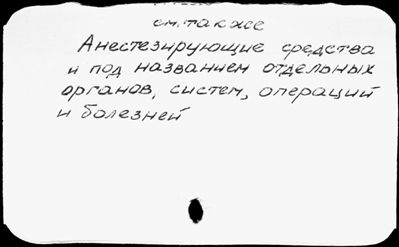 см. также
Анестезирующие средства
и под названием отдельных
органов, систем, операций
и болезней